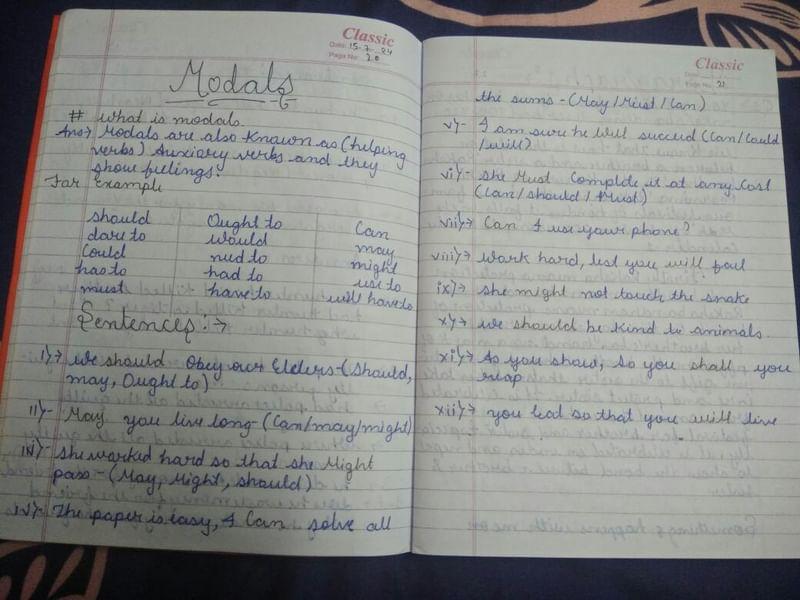 Classic
Date: 15-7-24
Page No: 20
Modals
# what is modals.
Ans→ Modals are also known as (helping
verbs) Auxiary verbs and they
show feelings.
For Example
should Ought to Can
dare to would may
Could nud to might
has to had to use to
must have to will have to
Sentences:→
i)→ we should Obey our Elders-(Should,
may, Ought to)
ii)- May you live long-(Can/may/might)
iv)- she worked hard so that she Might
pass-(May, Might, should)
iv)- The paper is easy, I Can solve all
Classic
Date
Page No. 21
the sums-(May/Must/Can)
v)- I am sure he will succed (Can/Could
/will)
vi)- she Must Complete it at any Cost
(Can/should/Must)
vii)→ Can I use your phone?
viii)→ work hard, lest you will fail
ix)→ she might not touch the snake
x)→ we should be kind to animals.
xi)→ As you show, so you shall you
reap
xii)→ you eat so that you will live